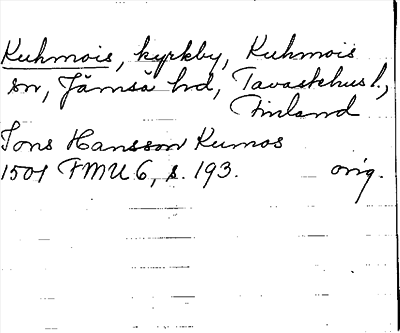 Kuhmois, kyrkby, Kuhmois
sn, Jämsä hd, Tavastehus l.,
Finland
Jons Hansson Kumos
1501 FMU 6, s. 193. orig.